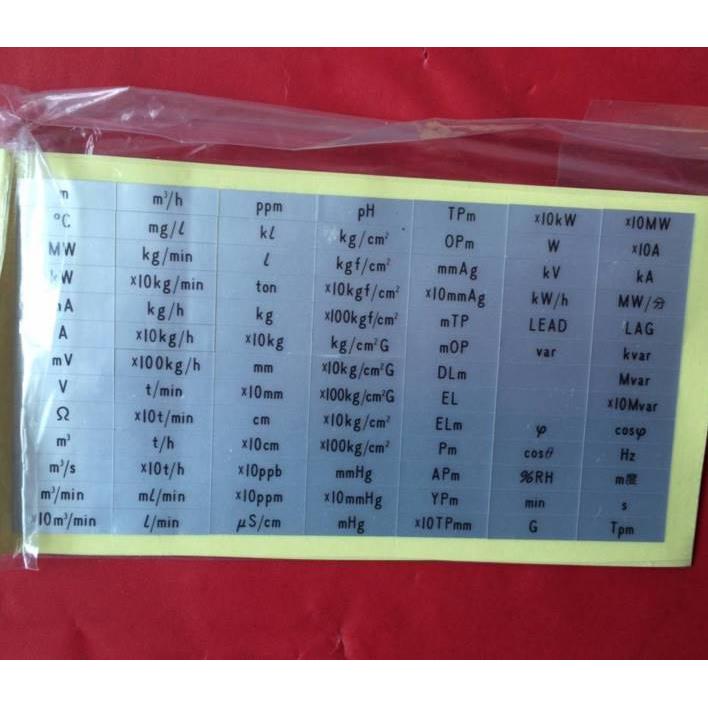 m³/h ppm pH TPm x10kW x10MW
°C mg/ℓ kℓ kg/cm² OPm W x10A
MW kg/min ℓ kgf/cm² mmAg kV kA
kW x10kg/min ton x10kgf/cm² x10mmAg kW/h MW/分
kg/h kg x100kgf/cm² mTP LEAD LAG
A x10kg/h x10kg kg/cm²G mOP var kvar
mV x100kg/h mm x10kg/cm²G DLm Mvar
V t/min x10mm x100kg/cm²G EL x10Mvar
Ω x10t/min cm x10kg/cm² ELm φ cosφ
m³ t/h x10cm x100kg/cm² Pm cosθ Hz
m³/s x10t/h x10ppb mmHg APm %RH m度
m³/min mℓ/min x10ppm x10mmHg YPm min s
x10m³/min ℓ/min μS/cm mHg x10TPmm G Tpm